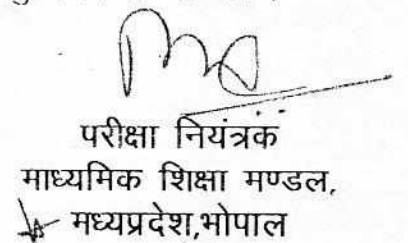 परीक्षा नियंत्रक
माध्यमिक शिक्षा मण्डल,
मध्यप्रदेश,भोपाल